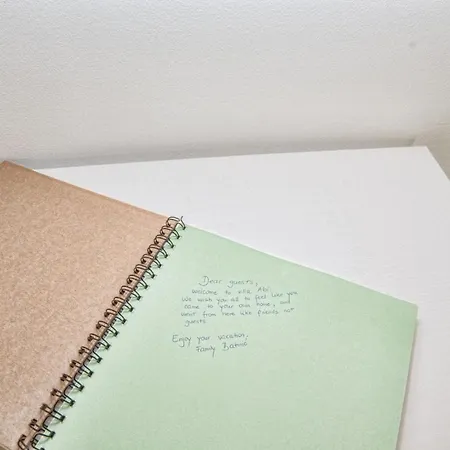 Dear guests,
welcome to our Abi.
We wish you all to feel like you
came to your own home, and
went from here like friends not
guests.
Enjoy your vacation,
Family